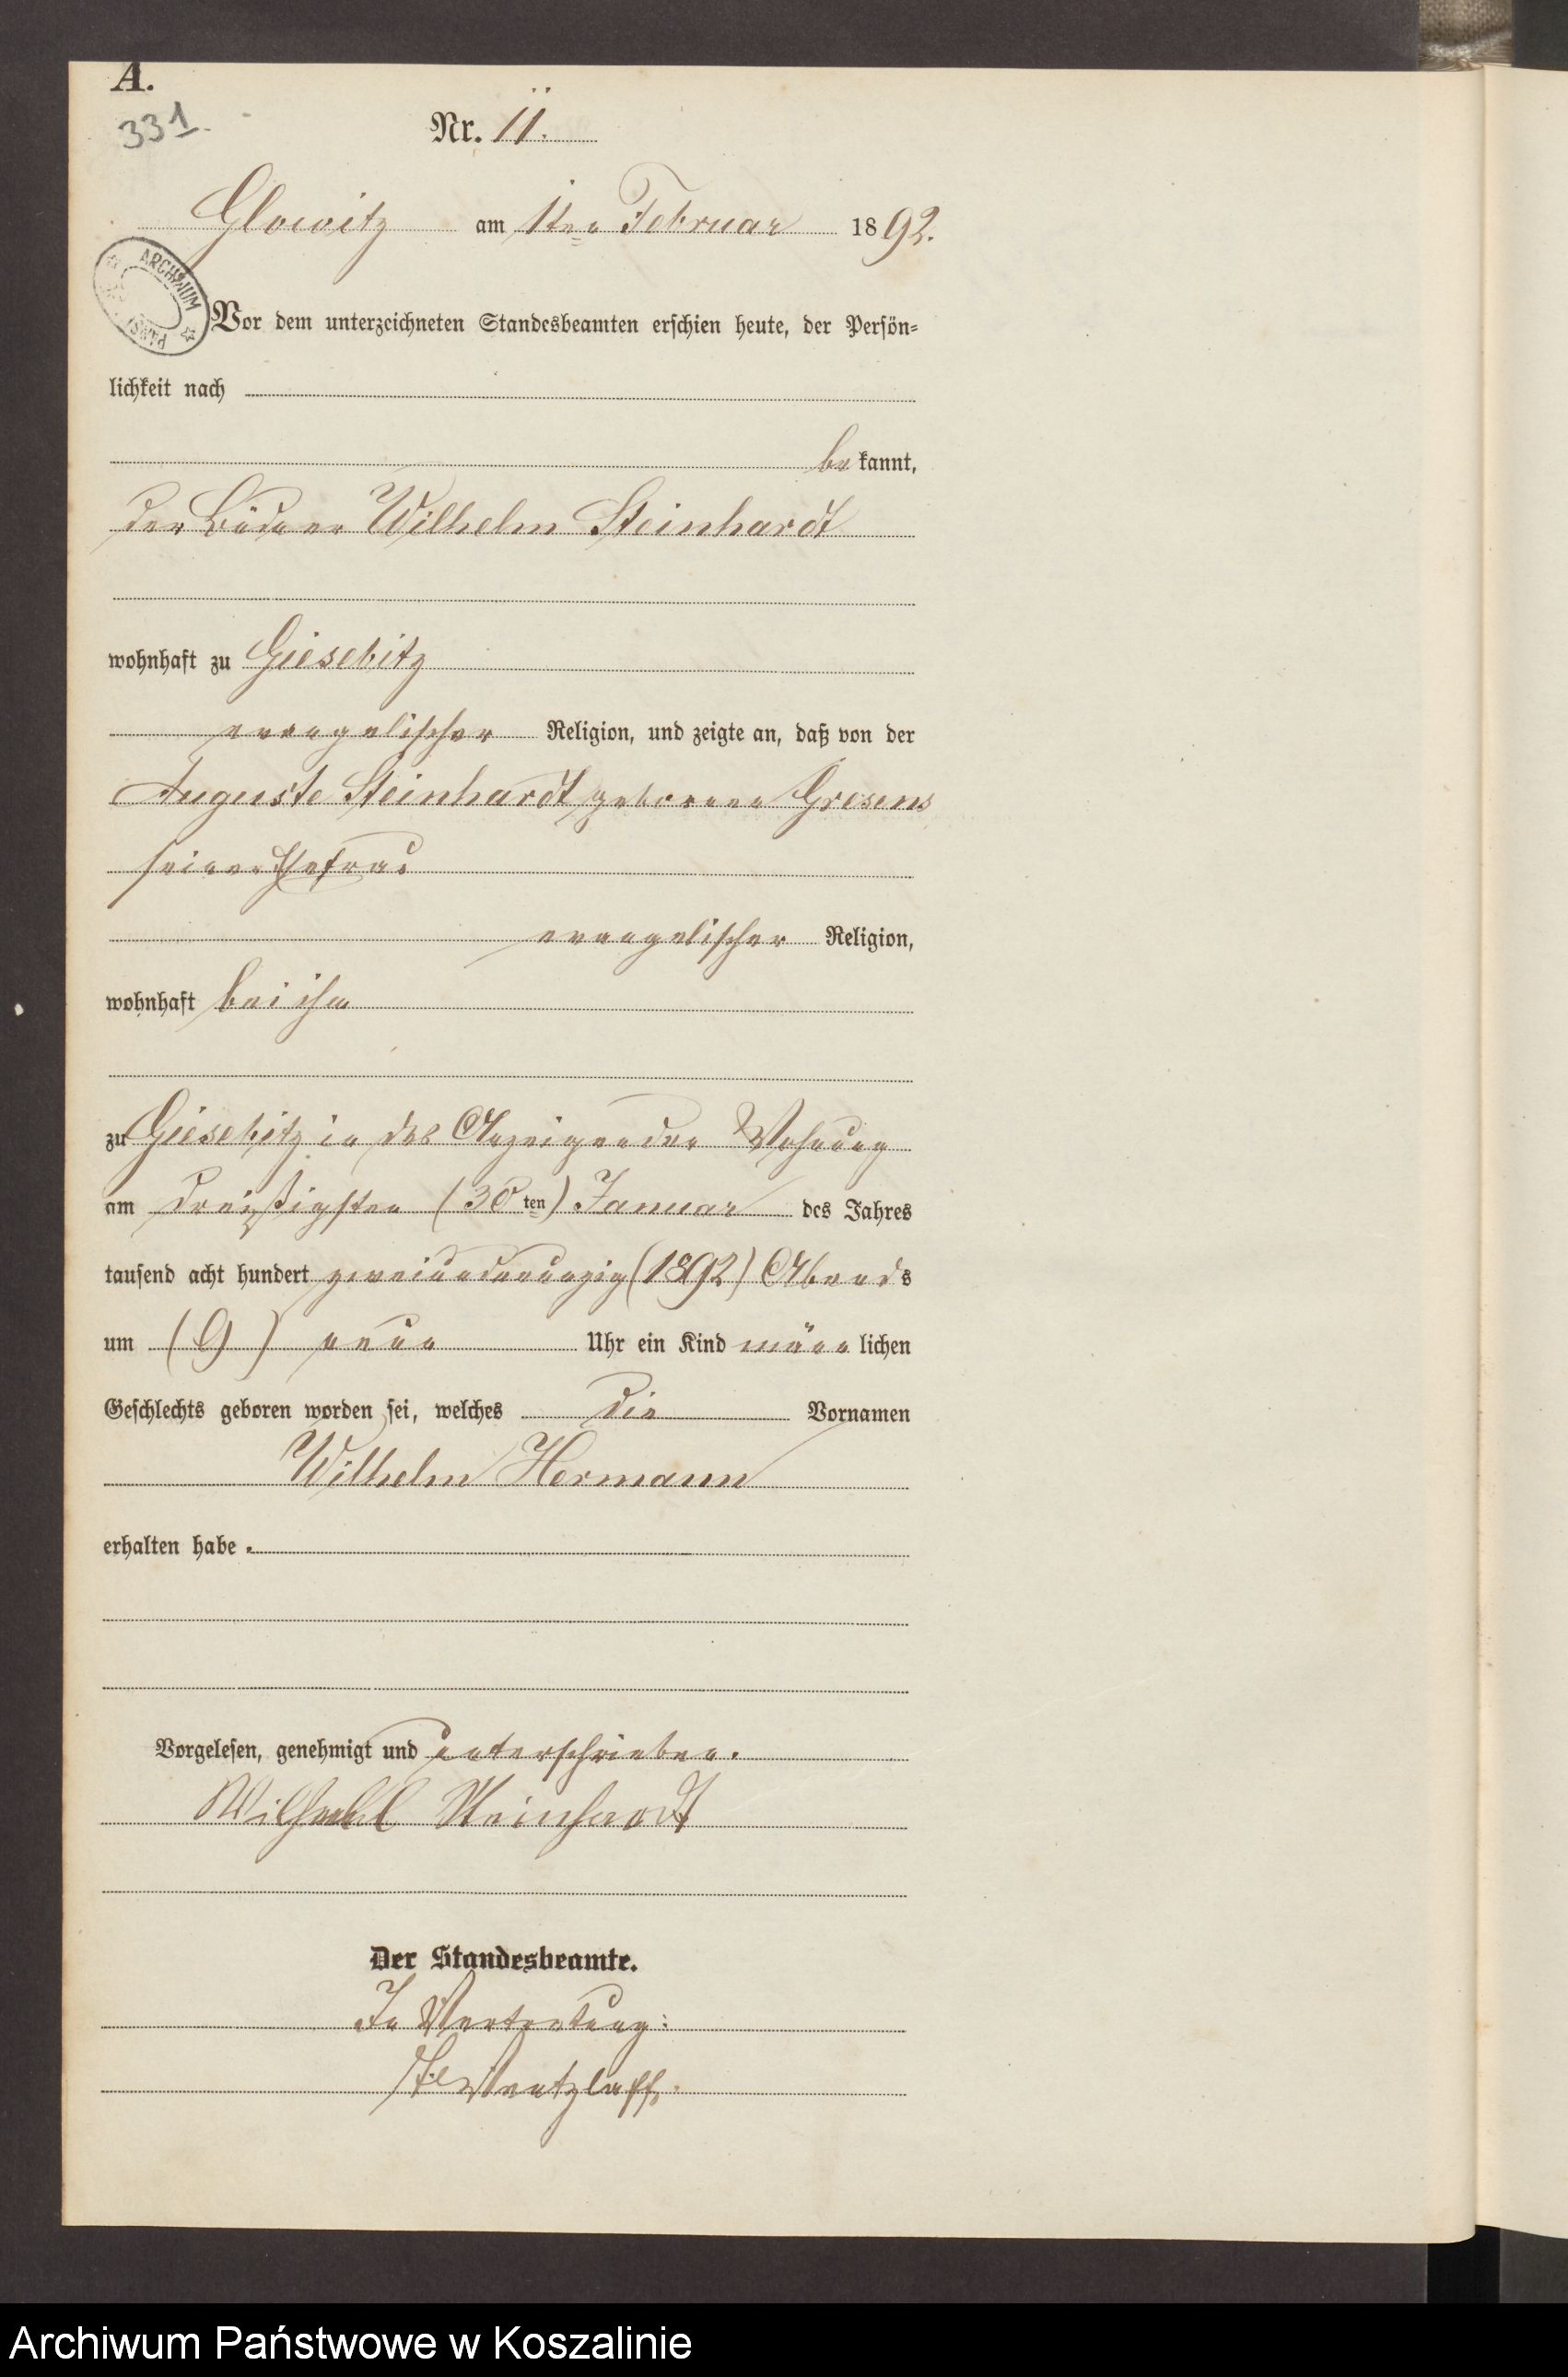 A.
331.
Nr. 11.
Glowitz am 1ten Februar 1892.
ARCHIWUM
Vor dem unterzeichneten Standesbeamten erschien heute, der Persön=
lichkeit nach
bekannt,
der Büdner Wilhelm Steinhardt
wohnhaft zu Giesebitz
evangelischer Religion, und zeigte an, daß von der
Auguste Steinhardt geborene Gresens
seiner Ehefrau
evangelischer Religion,
wohnhaft bei ihm
zu Giesebitz in des Anzeigenden Wohnung
am dreißigsten (30ten) Januar des Jahres
tausend acht hundert zweiundneunzig (1892) Abends
um (9) neun Uhr ein Kind männlichen
Geschlechts geboren worden sei, welches die Vornamen
Wilhelm Hermann
erhalten habe.
Vorgelesen, genehmigt und unterschrieben.
Steinhardt
Der Standesbeamte.
In Vertretung:
Archiwum Państwowe w Koszalinie